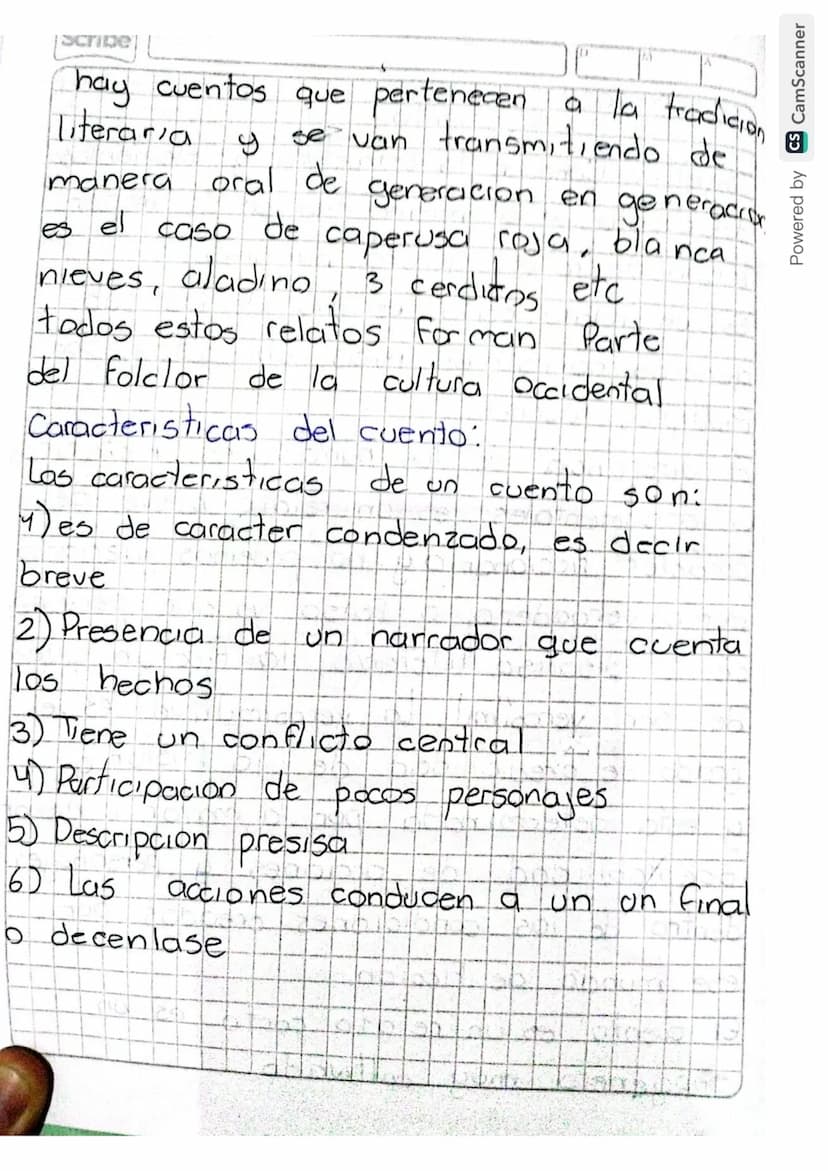 Scribe
hay cuentos que pertenecen a la tradicion
literaria y se van transmitiendo de
manera oral de generacion en generacion
es el caso de caperusa roja, blanca
nieves, aladino, 3 cerditos etc
todos estos relatos forman Parte
del folclor de la cultura occidental
Caracteristicas del cuento:
Las caracteristicas de un cuento son:
1) es de caracter condenzado, es decir
breve
2) Presencia de un narrador que cuenta
los hechos
3) Tiene un conflicto central
4) Participacion de pocos personajes
5) Descripcion presisa
6) Las acciones conducen a un un final
o decenlase
Powered by CS CamScanner